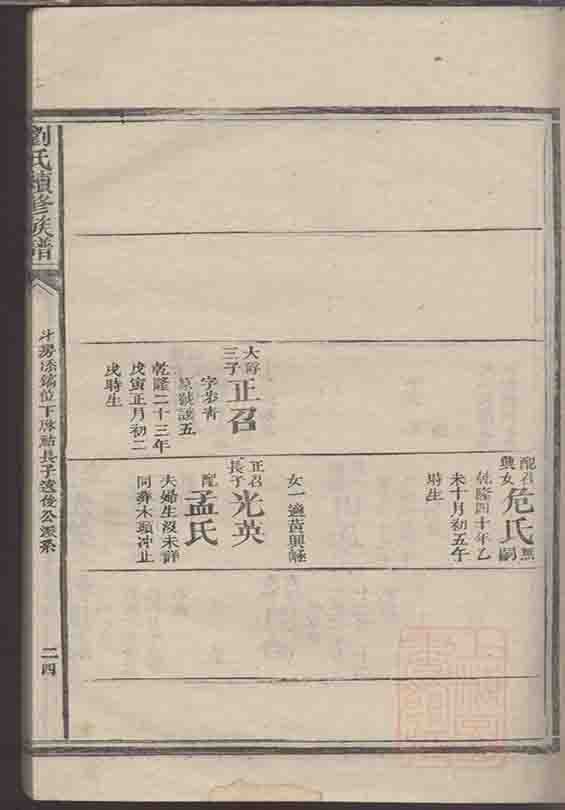 配召
與女
危氏
無嗣
乾隆四十年乙
未十月初五午
時生
女一適黃興
大
三子
正召
字步青
五
乾隆二十三年
戊寅正月初二
戌時生
正召
長子
光英
配
孟氏
夫婦生沒未詳
同葬木頭冲山
劉氏續修族譜
斗房添鎬位下
長子遠俊公派系
二四